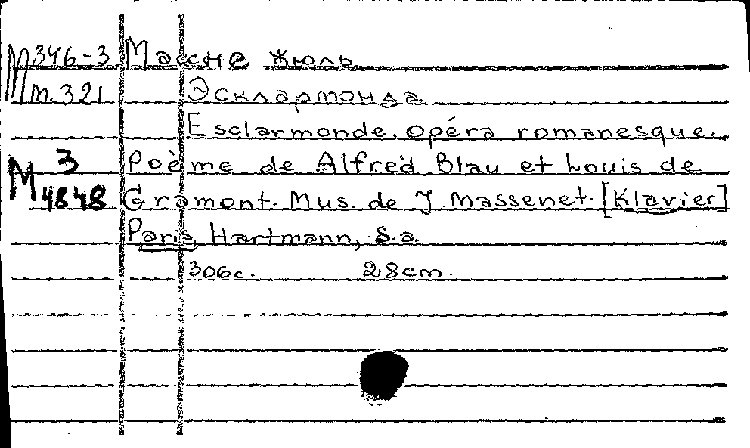 М346-3 Массне Жюль
М.321 Эсклармонда
Esclarmonde. opéra romanesque.
M 3 4848
Poème de Alfred Blau et Louis de
Gramont. Mus. de J Massenet. [Klavier]
Paris, Hartmann, s.a.
306с. 28cm.